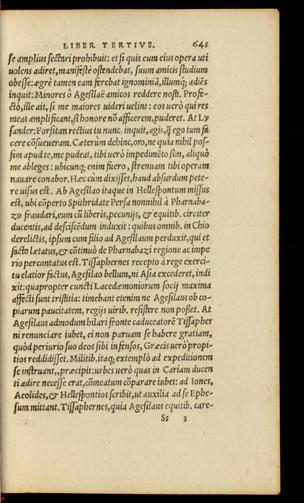 LIBER TERTIVS. 645
se amplius sectari prohibuit: et si quis eum eius opera uti
uolens adiret, manifestè ostendebat, suum amicis studium
obesse: ægrè tamen eam ferebat ignominiã, illumq; adiẽs
inquit: Minores ô Agesilaë amicos reddere nosti. Profe-
ctò, ille ait, si me maiores uideri uelint: eos uerò qui res
meas amplificant, si honore nõ afficerem, puderet. At Ly
sander: Forsitan rectius tu nunc inquit, agis, q̃ ego tum fa
cere cõsueueram. Cæterùm dehinc, oro, ne quia nihil pos-
sim apud te, me pudeat, tibi uerò impedimẽto sim, aliquò
me ableges: ubicunq; enim fuero, strenuam tibi operam
nauare conabor. Hæc cùm dixisset, haud absurdum pete-
re uisus est. Ab Agesilao itaque in Hellespontum missus
est, ubi cõperto Spithridate Persa nonnihil à Pharnaba-
zo fraudari, eum cũ liberis, pecunijs, & equitib. circiter
ducentis, ad desciscẽdum induxit: quibus omnib. in Chio
derelictis, ipsum cum filio ad Agesilaum perduxit, qui et
facto lætatus, & cõtinuò de Pharnabazi regione ac impe
rio percontatus est. Tissaphernes recepto à rege exerci-
tu elatior factus, Agesilao bellum, ni Asia excederet, indi
xit: quapropter cuncti Lacedæmoniorum socij maxima
affecti sunt tristitia: timebant etenim ne Agesilaus ob co-
piarum paucitatem, regijs uirib. resistere non posset. At
Agesilaus admodum hilari fronte caduceatorẽ Tissapher
ni renunciare iubet, ei non paruam se habere gratiam,
quòd periurio suo deos sibi infensos, Græcis uerò propi-
tios reddidisset. Militib. itaq; extemplò ad expeditionem
se instruant, præcipit: urbes uerò quas in Cariam ducen
ti adire necesse erat, cõmeatum cõparare iubet: ad Iones,
Aeolides, & Hellespontios scribit, ut auxilia ad se Ephe-
sum mittant. Tissaphernes, quia Agesilaus equitib. care-
Ss 3